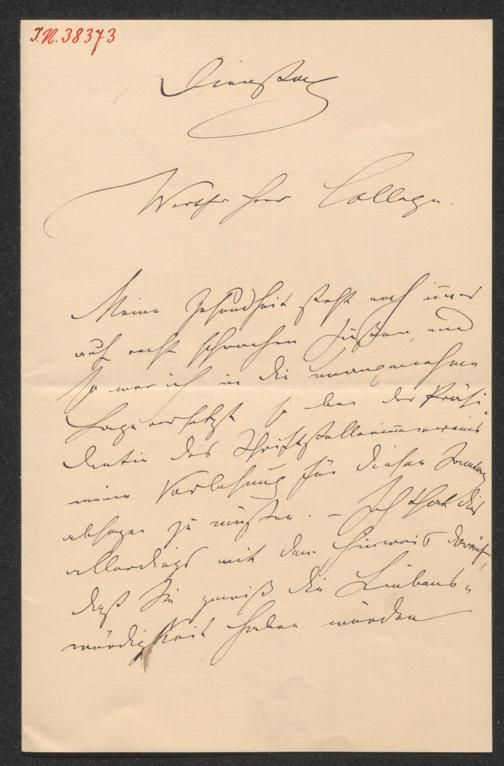 J.N. 38373
Dienstag
Werther Herr College.
Meine Gesundheit steht noch immer
auf recht schwachen Füßen, und
so war ich in die unangenehme
Lage versetzt, bei der Präsi-
dentin des Schriftstellerinnenvereins
meine Vorlesung für diesen Sonntag
absagen zu müssen. – Ich that dies
allerdings mit dem Hinweis darauf,
daß Sie gewiß die Liebens-
würdigkeit haben würden